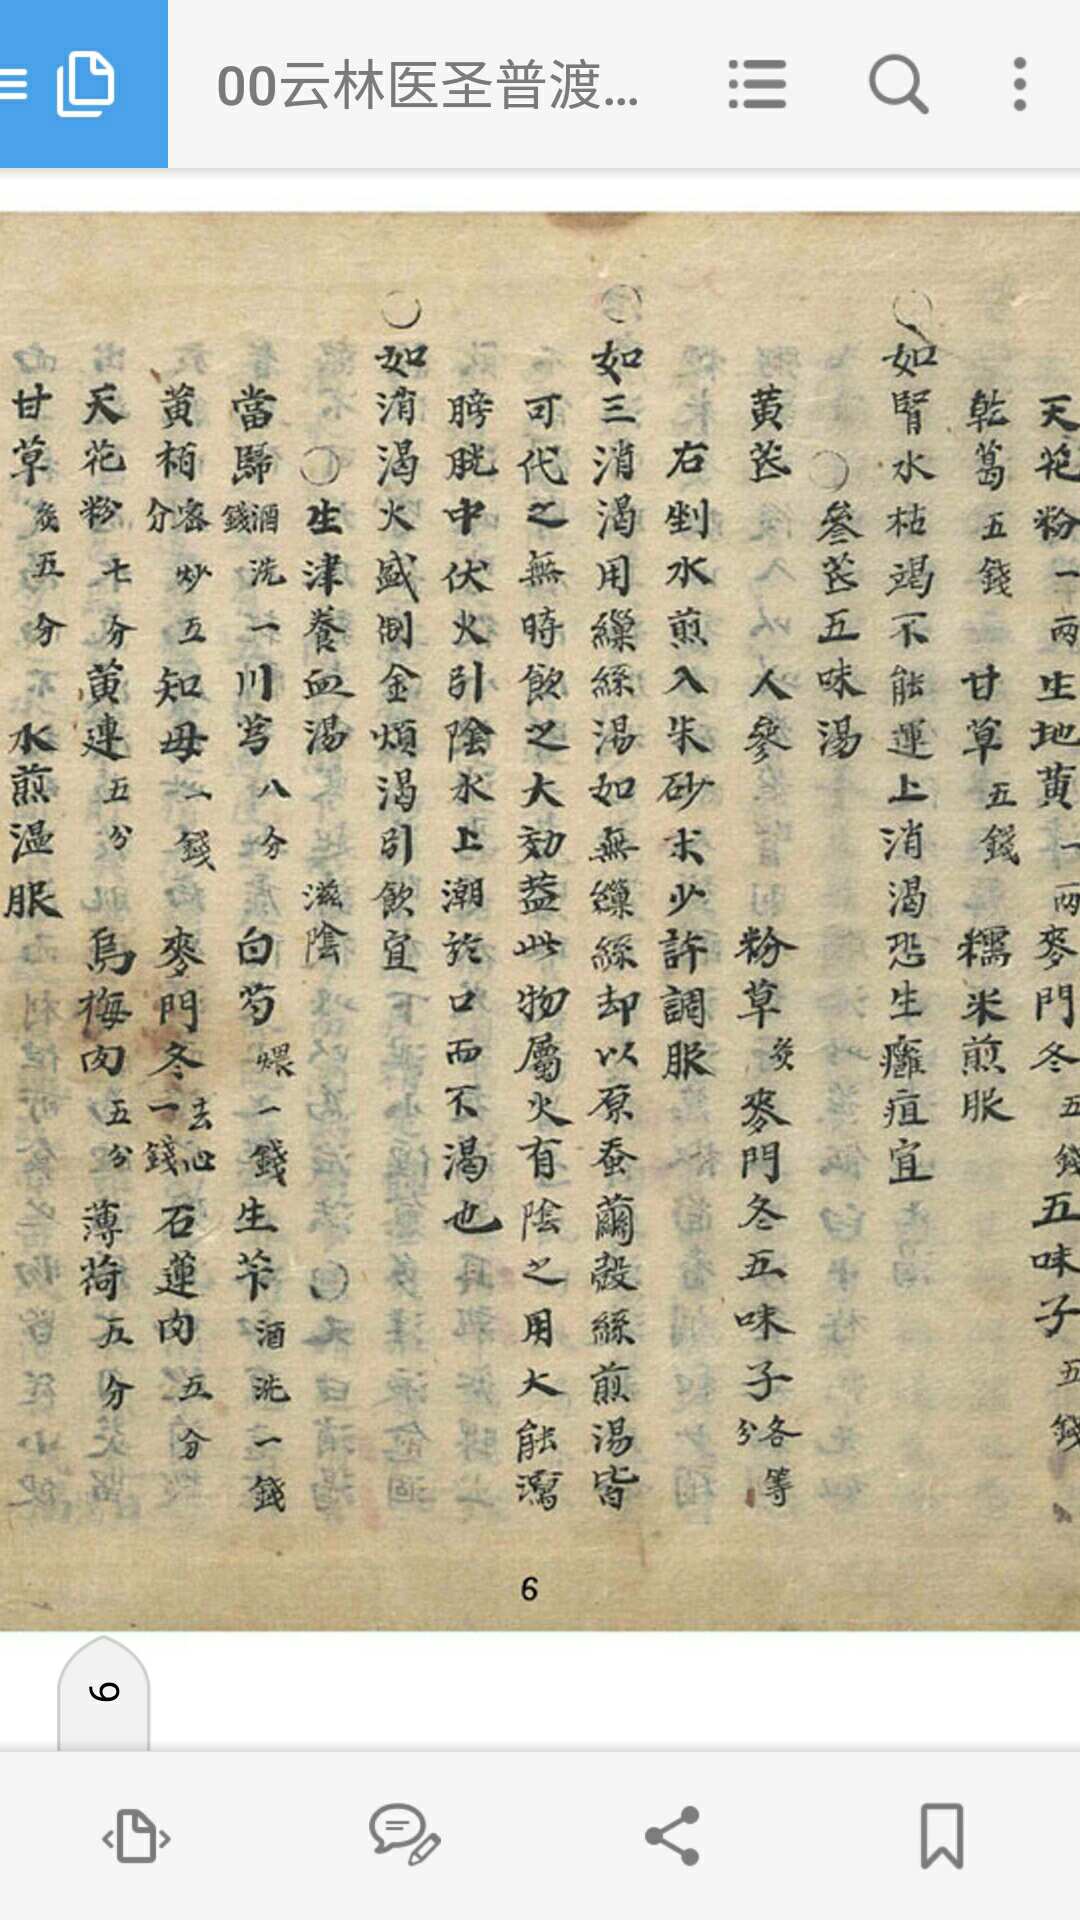 00云林医圣普渡...
天花粉一两生地黄一两麥門冬五錢五味子五錢
乾葛五錢 甘草五錢 糯米煎服
○如腎水枯竭不能運上消渴恐生癰疽宜
○參芪五味湯
黄芪 人參 粉草炙 麥門冬五味子各等分
右剉水煎入朱砂末少許調服
○如三消渴用繅絲湯如無繅絲却以原蚕繭殼絲煎湯皆
可代之無時飲之大効蓋此物屬火有陰之用大能瀉
膀胱中伏火引陰水上潮於口而不渴也
○如消渴火盛制金煩渴引飲宜
○生津養血湯 滋陰○
當歸酒洗一錢川芎八分 白芍煨一錢生苄酒洗一錢
黄栢密炒五分知母一錢 麥門冬去心一錢石蓮肉五分
天花粉七分黄連五分 烏梅肉五分薄荷五分
甘草炙五分 水煎温服
6
6